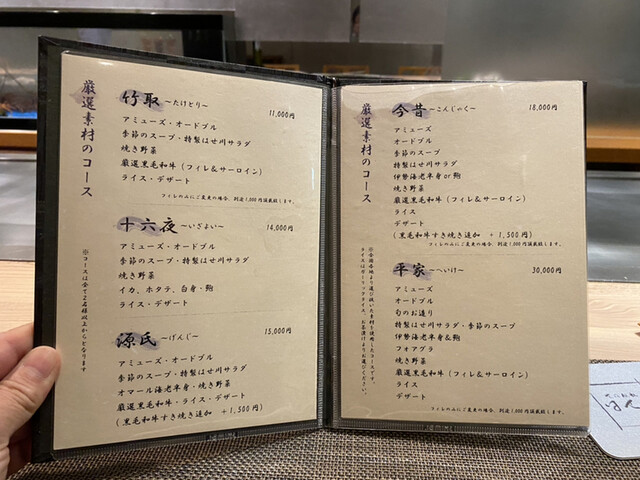 厳選素材のコース
竹取 〜たけとり〜 11,000円
アミューズ・オードブル
季節のスープ・特製はせ川サラダ
焼き野菜
厳選黒毛和牛（フィレ＆サーロイン）
ライス・デザート
フィレのみにご変更の場合、別途1,000円頂戴致します。
十六夜 〜いざよい〜 14,000円
アミューズ・オードブル
季節のスープ・特製はせ川サラダ
焼き野菜
イカ、ホタテ、白身・鮑
ライス・デザート
源氏 〜げんじ〜 15,000円
アミューズ・オードブル
季節のスープ・特製はせ川サラダ
オマール海老半身・焼き野菜
厳選黒毛和牛・ライス・デザート
（黒毛和牛すき焼き追加 ＋1,500円）
※コースは全て2名様以上からとなります
厳選素材のコース
今昔 〜こんじゃく〜 18,000円
アミューズ
オードブル
季節のスープ
特製はせ川サラダ
伊勢海老半身or鮑
焼き野菜
厳選黒毛和牛（フィレ＆サーロイン）
ライス
デザート
（黒毛和牛すき焼き追加 ＋1,500円）
フィレのみにご変更の場合、別途1,000円頂戴致します。
平家 〜へいけ〜 30,000円
アミューズ
オードブル
旬のお造り
特製はせ川サラダ・季節のスープ
伊勢海老半身＆鮑
フォアグラ
焼き野菜
厳選黒毛和牛（フィレ＆サーロイン）
ライス
デザート
フィレのみにご変更の場合、別途1,000円頂戴致します。
※全国各地より選び抜いた素材を使用したコースです。
ライスはガーリックライス、お茶漬けよりお選びください。